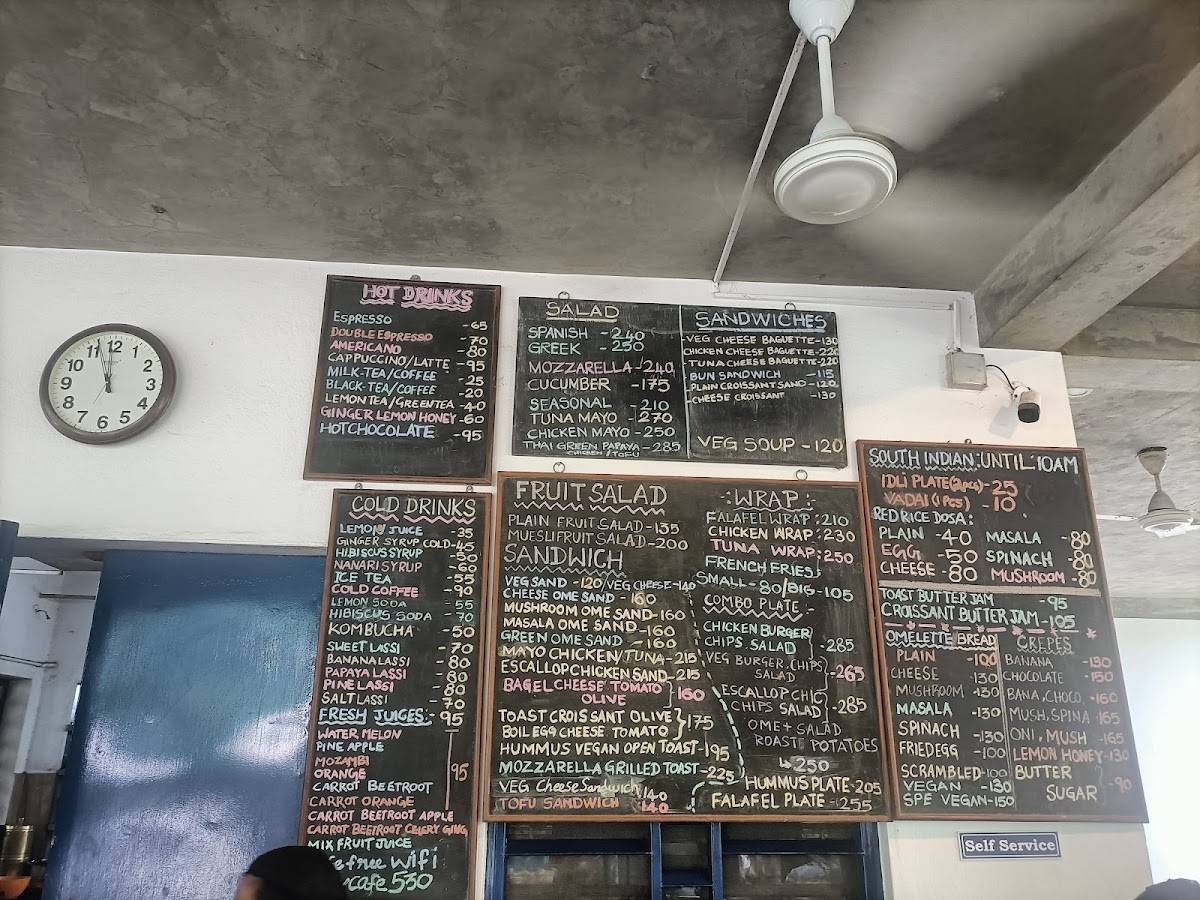 12
1
2
3
4
5
6
7
8
9
10
11
HOT DRINKS
ESPRESSO -65
DOUBLE ESPRESSO -70
AMERICANO -80
CAPPUCCINO/LATTE -95
MILK-TEA/COFFEE -25
BLACK-TEA/COFFEE -20
LEMON TEA/GREEN TEA -40
GINGER LEMON HONEY -60
HOT CHOCOLATE -95
SALAD
SPANISH -240
GREEK -250
MOZZARELLA -240
CUCUMBER -175
SEASONAL -210
TUNA MAYO -270
CHICKEN MAYO -250
THAI GREEN PAPAYA -285
CHICKEN/TOFU
SANDWICHES
VEG CHEESE BAGUETTE -130
CHICKEN CHEESE BAGUETTE -220
TUNA CHEESE BAGUETTE -220
BUN SANDWICH -115
PLAIN CROISSANT SAND -120
CHEESE CROISSANT -130
VEG SOUP -120
COLD DRINKS
LEMON JUICE -35
GINGER SYRUP COLD -45
HIBISCUS SYRUP -50
NANARI SYRUP -60
ICE TEA -55
COLD COFFEE -90
LEMON SODA 55
HIBISCUS SODA 70
KOMBUCHA -50
SWEET LASSI -70
BANANA LASSI -80
PAPAYA LASSI -80
PINE LASSI -80
SALT LASSI -70
FRESH JUICES: -95
WATER MELON
PINE APPLE
MOZAMBI
ORANGE 95
CARROT BEETROOT
CARROT ORANGE
CARROT BEETROOT APPLE
CARROT BEETROOT CELERY GING
MIX FRUIT JUICE
free Wifi
cafe 530
FRUIT SALAD
PLAIN FRUIT SALAD -135
MUESLI FRUIT SALAD -200
SANDWICH
VEG SAND -120/VEG CHEESE -140
CHEESE OME SAND -160
MUSHROOM OME SAND -160
MASALA OME SAND -160
GREEN OME SAND -160
MAYO CHICKEN/TUNA -215
ESCALLOP CHICKEN SAND -215
BAGEL CHEESE TOMATO
OLIVE } 160
TOAST CROISSANT OLIVE
BOIL EGG CHEESE TOMATO } 175
HUMMUS VEGAN OPEN TOAST -195
MOZZARELLA GRILLED TOAST -225
VEG Cheese Sandwich 140
TOFU SANDWICH 140
:WRAP:
FALAFEL WRAP :210
CHICKEN WRAP :230
TUNA WRAP :250
FRENCH FRIES:
SMALL -80/BIG -105
COMBO PLATE:
CHICKEN BURGER
CHIPS SALAD -285
VEG BURGER, CHIPS
SALAD -265
ESCALLOP CHIC
CHIPS SALAD -285
OME + SALAD
ROAST POTATOES
250
HUMMUS PLATE -205
FALAFEL PLATE -255
SOUTH INDIAN: UNTIL: 10AM
IDLI PLATE (2pcs) -25
VADAI (1 PCS) -10
RED RICE DOSA:
PLAIN -40
EGG -50
CHEESE -80
MASALA -80
SPINACH -80
MUSHROOM -80
TOAST BUTTER JAM -95
CROISSANT BUTTER JAM -105
OMELETTE/BREAD
PLAIN -100
CHEESE -130
MUSHROOM -130
MASALA -130
SPINACH -130
FRIED EGG -100
SCRAMBLED -100
VEGAN -130
SPE VEGAN -150
CREPES
BANANA -130
CHOCOLATE -150
BANA, CHOCO -160
MUSH, SPINA -165
ONI, MUSH -165
LEMON HONEY -130
BUTTER
SUGAR -90
Self Service